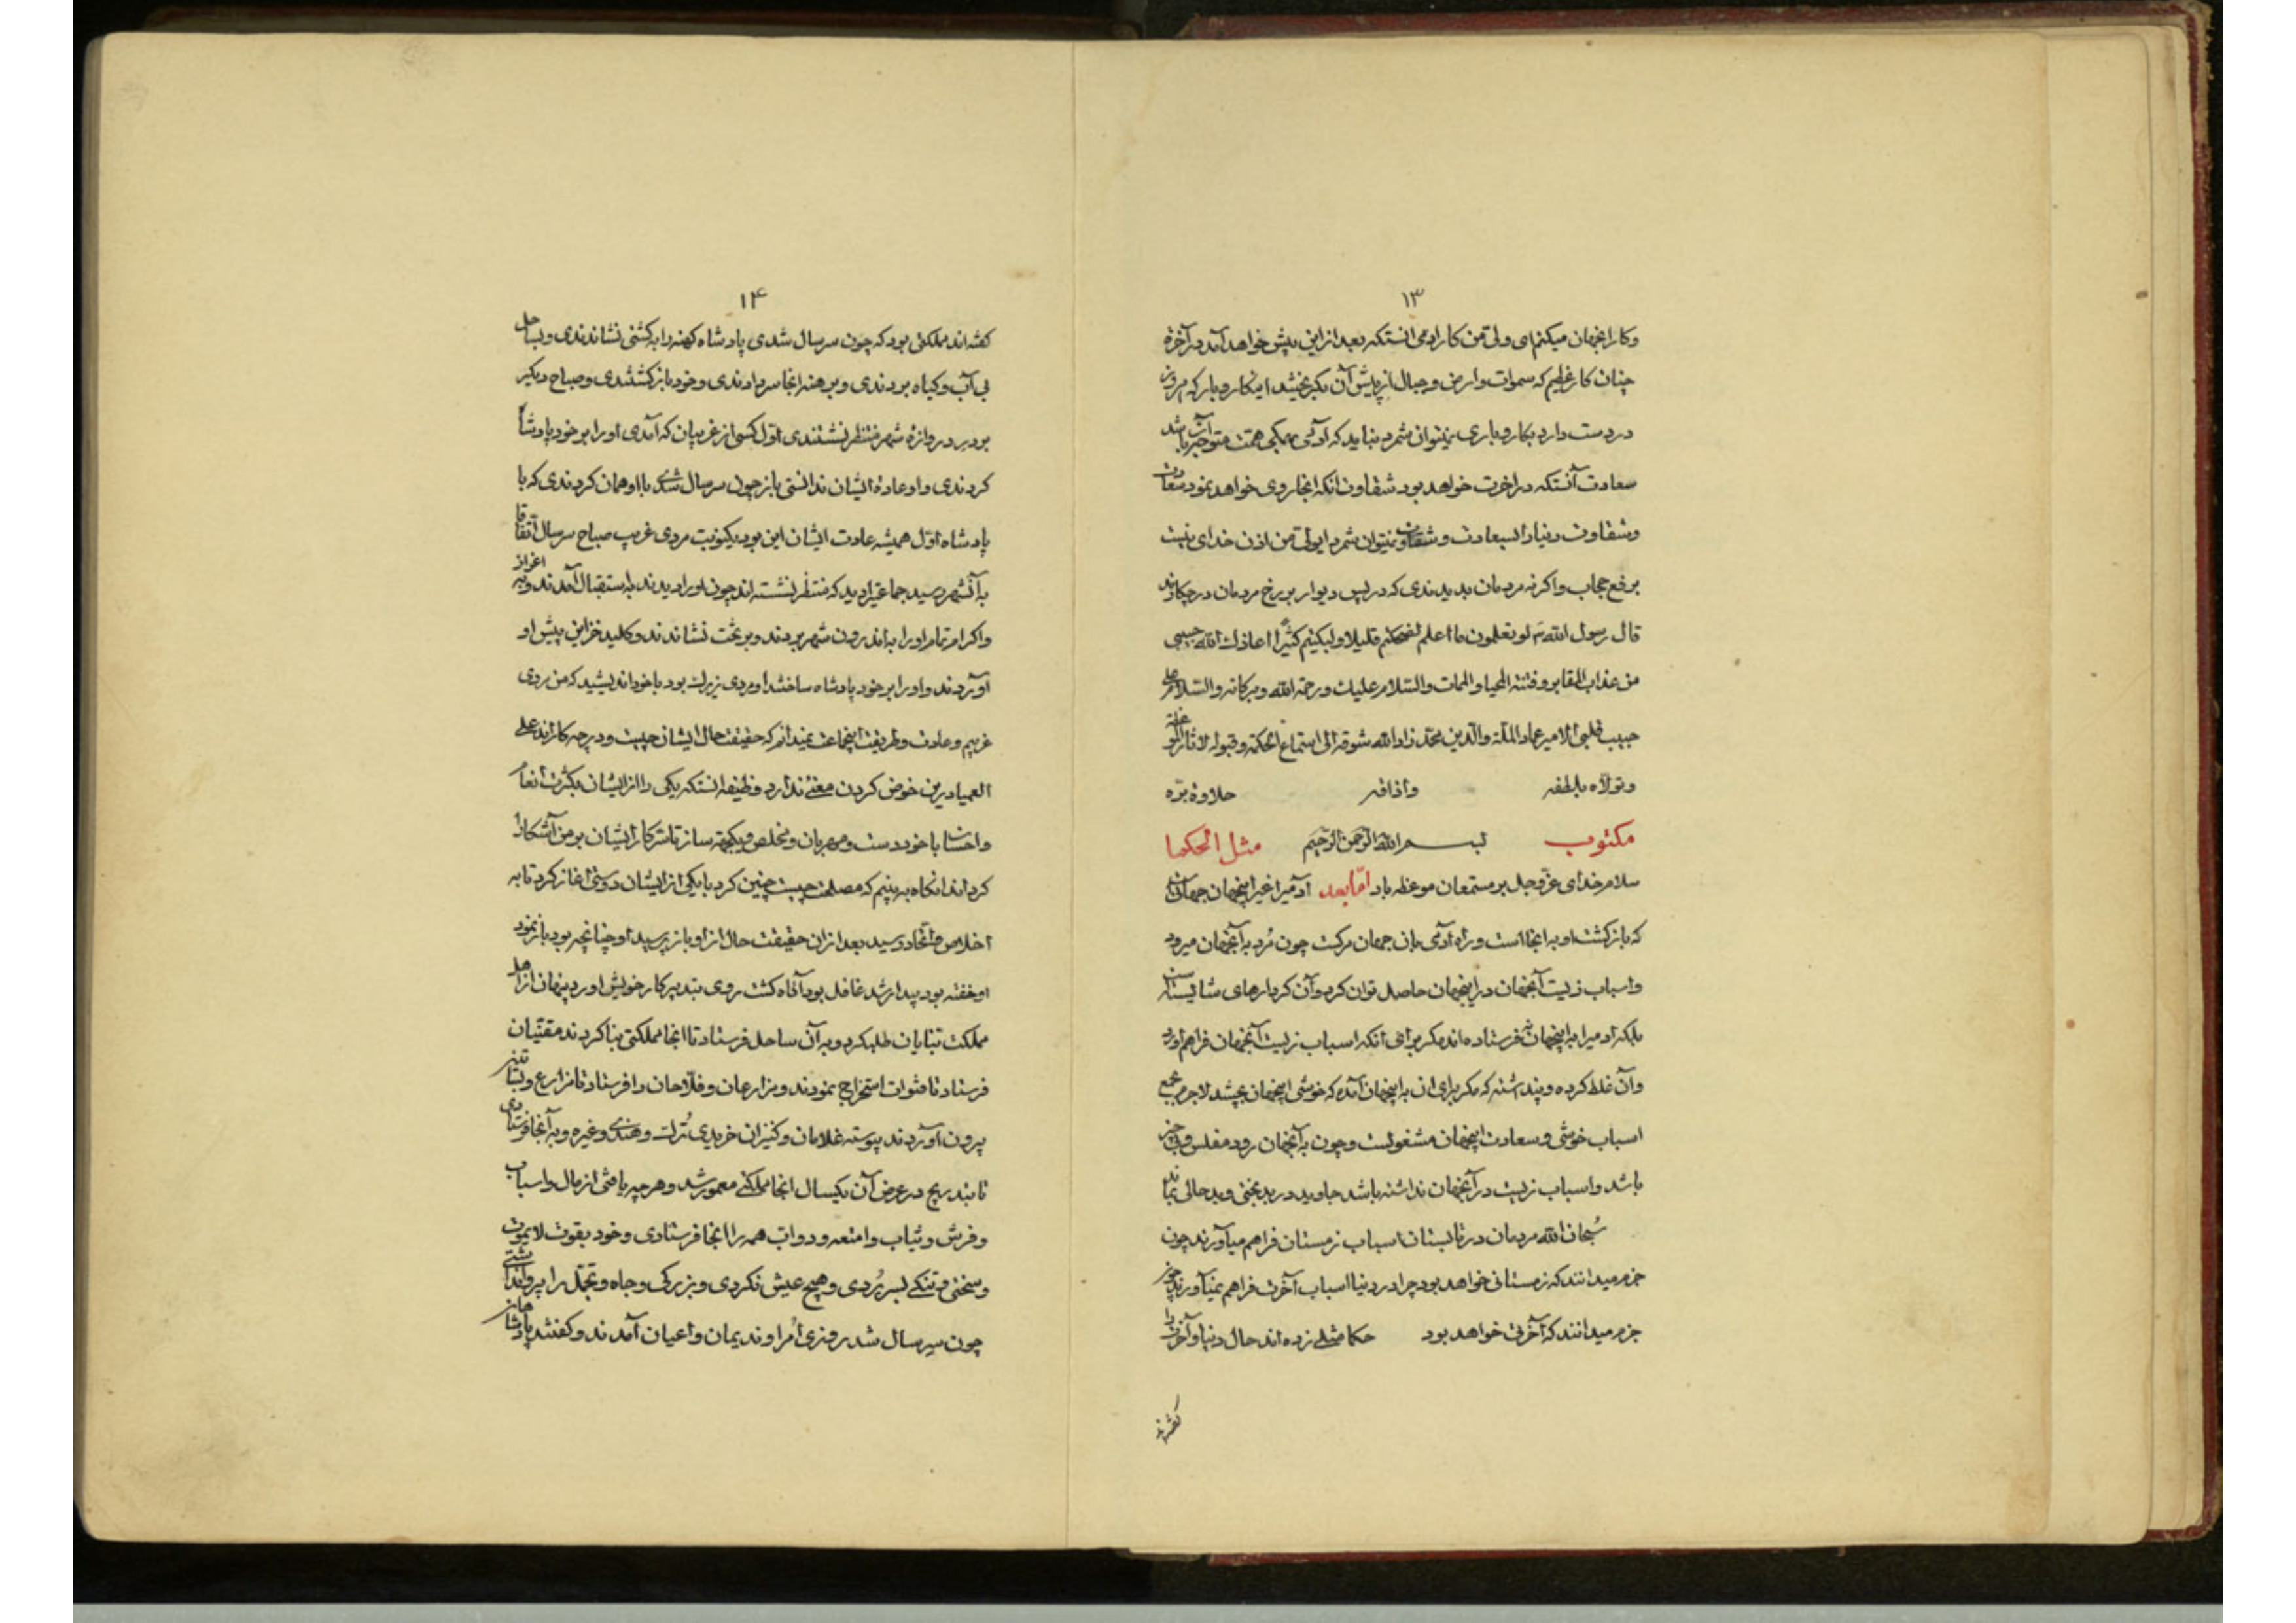 ۱۳
وکار اینجهان میکنم ای ولی من کار ادمی انستکه بعد از این پیش خواهد آمد در آخرة
چنان کار عظیم که سموات وارض وجبال از پیش آن بگریختند اینکار وبار که امروز
در دست دارد بکار وباری نمیتوان شمرد نباید که آدمی همگی همت متوجه آن باشد
سعادت آنستکه در اخرت خواهد بود شقاوت انکه انجا روی خواهد نمود سعادت
وشقاوت دنیا را بسعادت وشقاوت نمیتوان شمرد ایولی من اذن خدای نیست
برفع حجاب واکرنه مردمان بدیدندی که در پس دیوار برزخ مردمان در چکارند
قال رسول الله لو تعلمون ما اعلم لضحکتم قلیلا ولبکیتم کثیرا اعاذک الله حبیبی
من عذاب المقابر وفتنة المحیا والممات والسلام علیک ورحمة الله وبرکاته والسلام علی
حبیب قلبی الامیر عماد الملة والدین محمد زاد الله شوقه الی استماع الحکمة وقبوله لاثار
وتولاه بلطفه واذاقه حلاوة برّه
مکتوب بسم الله الرحمن الرحیم مثل الحکما
سلام خدای عزّ وجل بر مستمعان موعظه باد امّا بعد ادمیرا غیر اینجهان جهانی است
که بازکشت او به انجا است وراه آدمی بان جهان مرکست چون مُرد به آنجهان میرود
واسباب زیست آنجهان در اینجهان حاصل توان کرد وآن کردارهای شایسته است
بلکه ادمیرا به اینجهان نفرستاده اند مکر برای آنکه اسباب زیست آنجهان فراهم اورد
وآن غلط کرده وپنداشته که مکر برای ان به اینجهان آمده که خوشی اینجهان بچشد لاجرم بجمع
اسباب خوشی وسعادت اینجهان مشغولست وچون به آنجهان رود مفلس وبی چیز
باشد واسباب زیست در آنجهان نداشته باشد جاوید در بدبختی وبدحالی بماند
سُبحان الله مردمان در تابستان اسباب زمستان فراهم میآورند چون
جزم میدانند که زمستانی خواهد بود چرا در دنیا اسباب آخرت فراهم نمیآورند چون
جزم میدانند که آخرتی خواهد بود حکما مثلی زده اند حال دنیا وآخرت را
کفته اند
۱۴
کفته اند مملکتی بود که چون سر سال شدی پادشاه کهنه را به کشتی نشاندندی وبساحل
بی آب وکیاه بردندی وبرهنه انجا سر دادندی وخود بازکشتندی وصباح دیکر
بر در دروازهٔ شهر منتظر نشستندی اوّل کسی از غریبان که آمدی او را بر خود پادشاه
کردندی واو عادة ایشان ندانستی باز چون سر سال شدی با او همان کردندی که با
پادشاه اوّل همیشه عادت ایشان این بود یکنوبت مردی غریب صباح سر سال اتّفاقا
به آنشهر رسید جماعتیرا دید که منتظر نشسته اند چون او را دیدند به استقبال آمدند وبه اعزاز
واکرام تمام او را به اندرون شهر بردند وبر تخت نشاندند وکلید خزاین پیش او
آوردند واو را بر خود پادشاه ساختند او مردی زیرک بود با خود اندیشید که من مردی
غریبم وعادت وطریقت اینجماعت نمیدانم که حقیقت حال ایشان چیست ودر چه کارند علی
العمیا درین خوض کردن معنی ندارد وظیفه انستکه یکی را از ایشان بکثرت انعام
واحسان با خود دوست ومهربان ومخلص ویکجهت سازم تا سرّ کار ایشان بر من آشکارا
کرداند انکاه به بینم که مصلحت چیست چنین کرد با یکی از ایشان دوستی اغاز کرد تا به
اخلاص واتّحاد رسید بعد ازان حقیقت حال از او باز پرسید او چنانچه بود باز نمود
او خفته بود بیدار شد غافل بود آکاه کشت روی بتدبیر کار خویش اورد پنهان از اهل
مملکت بنایان طلب کرد وبه آن ساحل فرستاد تا انجا مملکتی بنا کردند مقنّیان
فرستاد تا قنوات استخراج نمودند ومزارعان وفلّاحان را فرستاد تا مزارع وبساتین
بیرون آوردند پیوسته غلامان وکنیزان خریدی تُرک وهندی وغیره وبه آنجا فرستادی
تا بتدریج در عرض آن یکسال انجا مملکتی معمور شد وهرچه یافتی از مال واسباب
وفرش وثیاب وامتعه ودواب همه را انجا فرستادی وخود بقوت لایموت
وسختی وتنکی بسر بُردی وهیچ عیش نکردی وبزرکی وجاه وتجمّل را پروا نداشتی
چون سر سال شد روزی اُمرا وندیمان واعیان آمدند وکفتند پادشاها